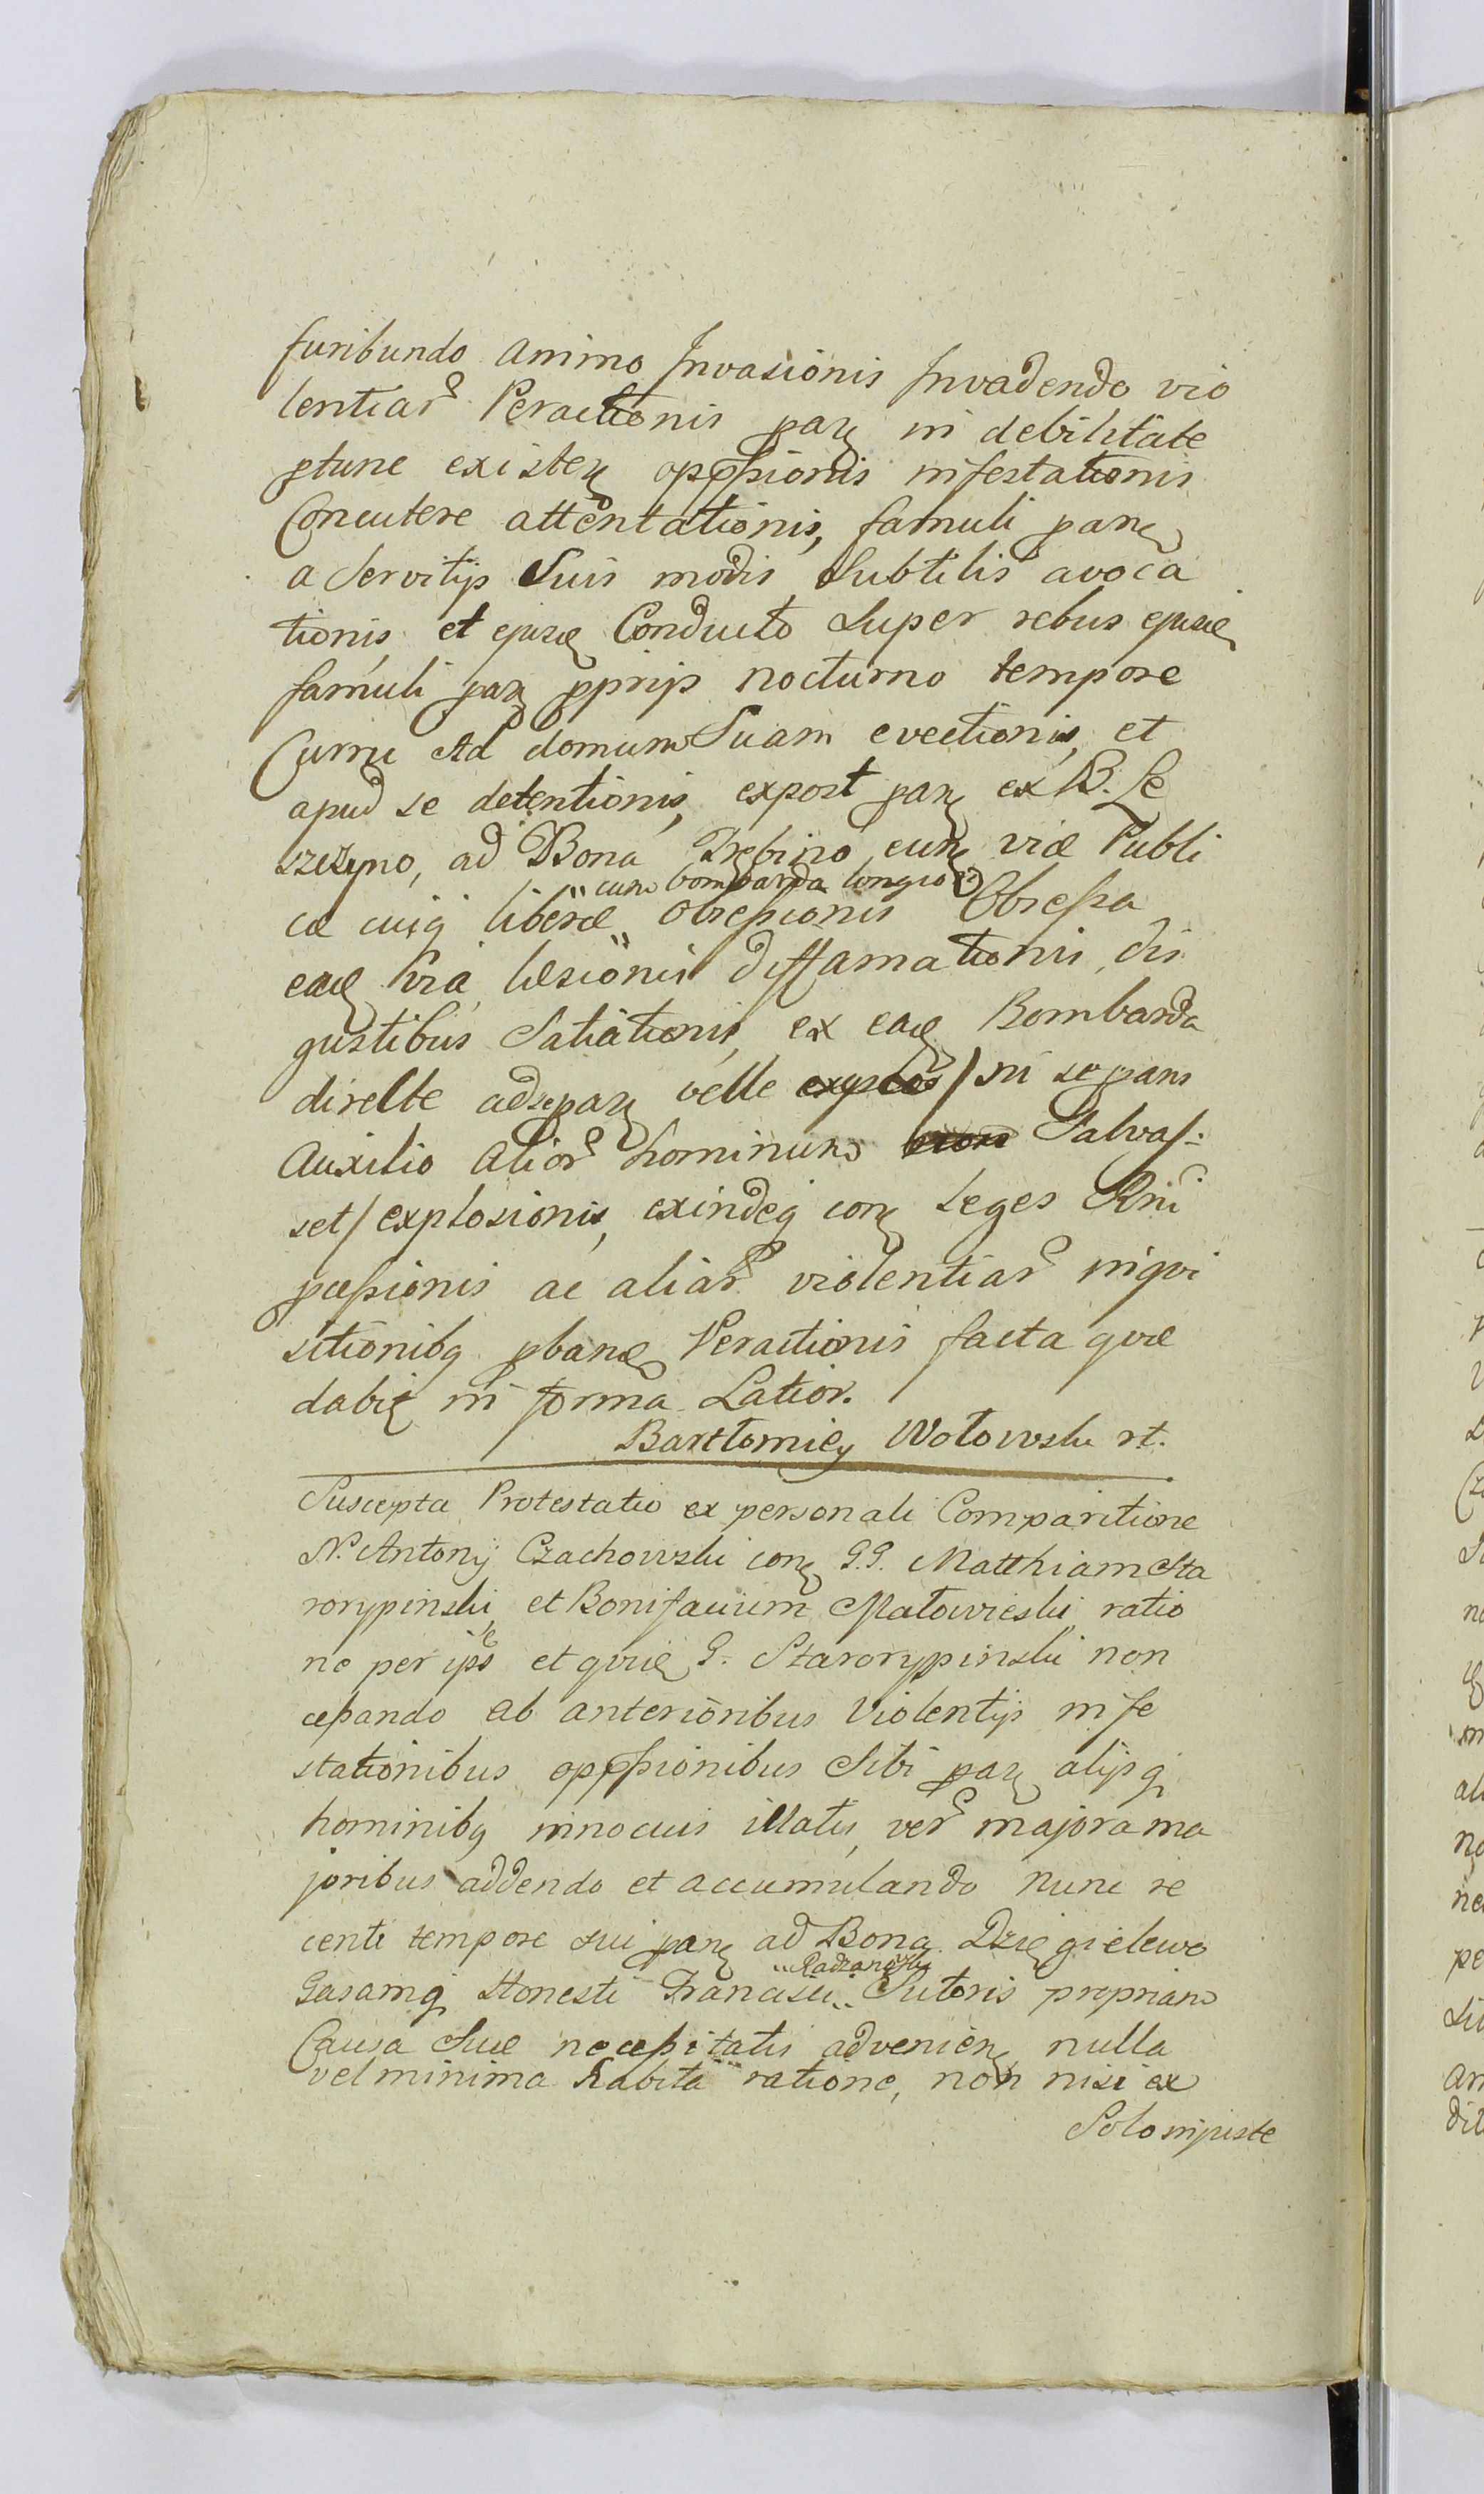 furibundo animo Invasionis Invadendo vio
lentiar Peractionis parę in debilitate
ptunc existen oppssionis infestationis
Concutere attentationis, famuli parę
a Servitijs Suis modis Subtilis avoca
tionis et ejusdę Conducto Super rebus ejusdę
famuli parę pprijs nocturno tempore
Curru Ad domum Suam evectionis, et
apud se detentionis, expost parę ex B. Le
szczyno, ad Bona Trębino eunę viæ Publi
cæ cuiq liberæ " obsessionis Obsessa
" cum bombarda longiori
eadę via læsionis diffamationis, dis
gustibus Satiationis, ex eadę Bombarda
directe ad se parę velle / ni se pans
Auxilio alior hominum Salvas:
set / explosionis, exindeq conę Leges Rni
pcessionis ac aliar violentiar inqui
sitionibq pbandę Peractionis facta quæ
dabię in forma Latiori.
Bartłomiey Wołowski rt.
Suscepta Protestatio ex personali Comparitione
N. Antonij Czachowski conę G.G. Matthiam Sta
rorypinski, et Bonifacium Małowieski, ratio
ne per ipsos et quidę G. Starorypinski non
cessando ab anterioribus Violentijs infe
stationibus oppssionibus Sibi parę alijsq
hominibq innocuis illatis, ver majora ma
joribus addendo et accumulando nunc re
centi tempore sui parę ad Bona Dzięgielewo
" Radzanowski
Casamq Honesti Francisci " Sutoris propriam
Causa Suæ necessitatis advenienę nulla
vel minima habita ratione, non nisi ex
Solo injuste